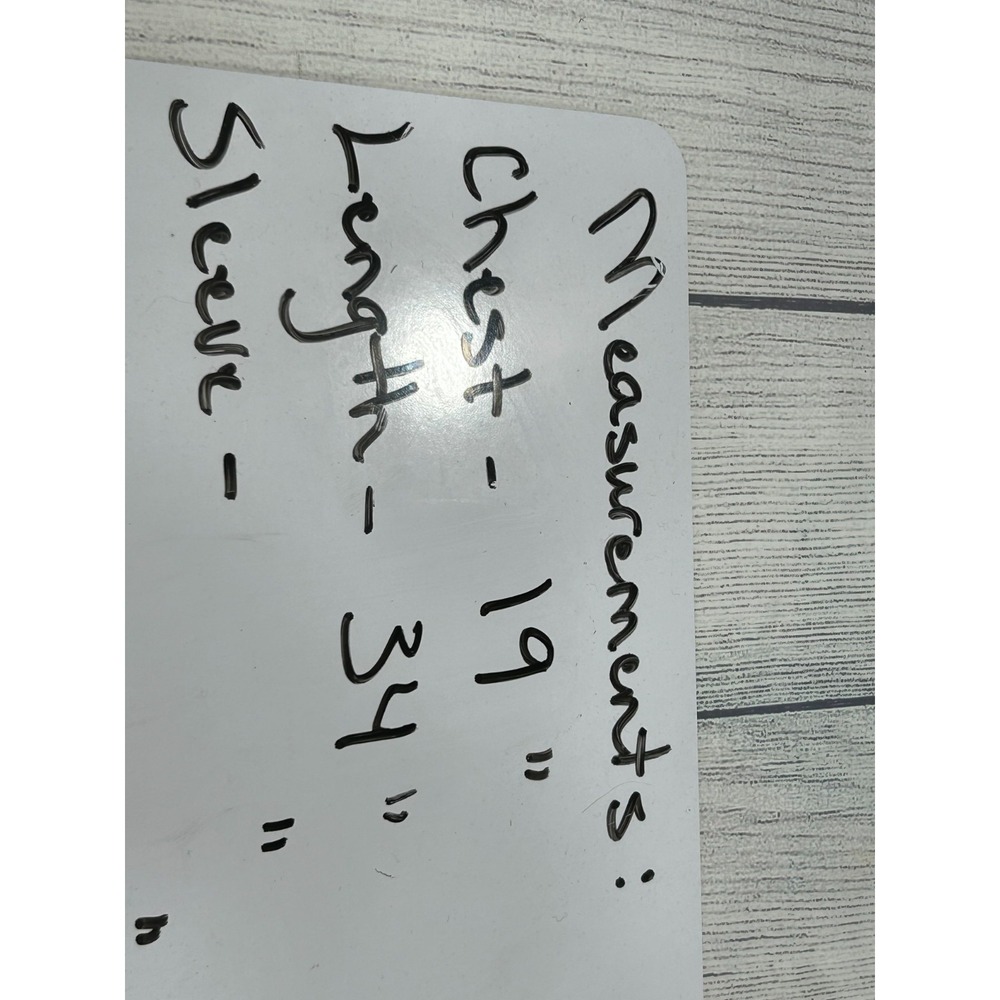 Measurements:
Chest - 19"
Length - 34"
Sleeve - "
"